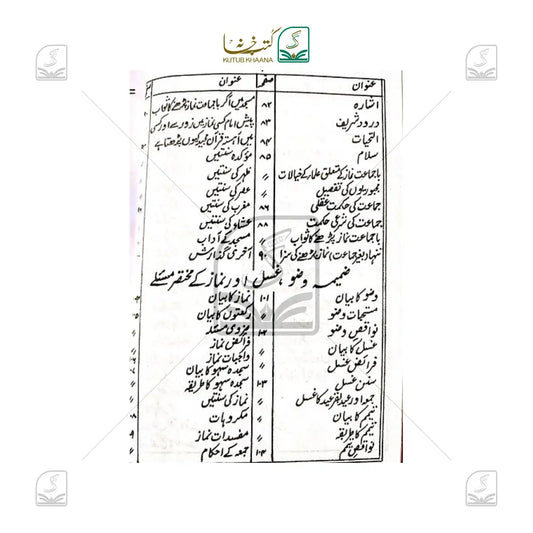 کتب خانہ
KUTUB KHAANA
عنوان صفحہ
اشارہ ۸۲
درود شریف ۸۳
التحیات ۸۴
سلام ۸۵
باجماعت نماز کے متعلق علماء کے خیالات //
مجبوریوں کی تفصیل //
جماعت کی حکمت عقلی ۸۶
جماعت کی شرعی حکمت ۸۸
باجماعت نماز پڑھنے کا ثواب //
تنہا (بغیر جماعت) نماز پڑھنے کی سزا ۹۰
عنوان
مسجد میں اگر باجماعت نماز پڑھنے کا ثواب
پیش امام کسی نماز میں زور سے اور کسی
میں آہستہ قرآن مجید کیوں پڑھتا ہے
مؤکدہ سنتیں
ظہر کی سنتیں
عصر کی سنتیں
مغرب کی سنتیں
عشاء کی سنتیں
مسجد کے آداب
آخری گذارش
ضمیمہ وضو، غسل اور نماز کے مختصر مسئلے
وضو کا بیان ۱۰۱
مستحبات وضو //
نواقض وضو ۱۰۲
غسل کا بیان //
فرائض غسل //
سنن غسل ۱۰۳
جمعہ اور عید بقر عید کا غسل //
تیمم کا بیان //
تیمم کا طریقہ //
نواقض تیمم ۱۰۴
نماز کا بیان
رکعتوں کا بیان
ضروری مسئلہ
فرائض نماز
واجبات نماز
سجدہ سہو کا بیان
سجدہ سہو کا طریقہ
نماز کی سنتیں
مکروہات
مفسدات نماز
جمعہ کے احکام